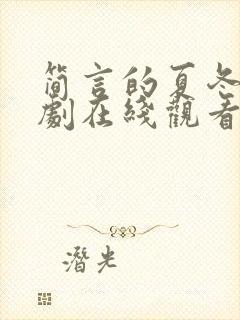 简言的夏冬
劇在綫觀看
潛光